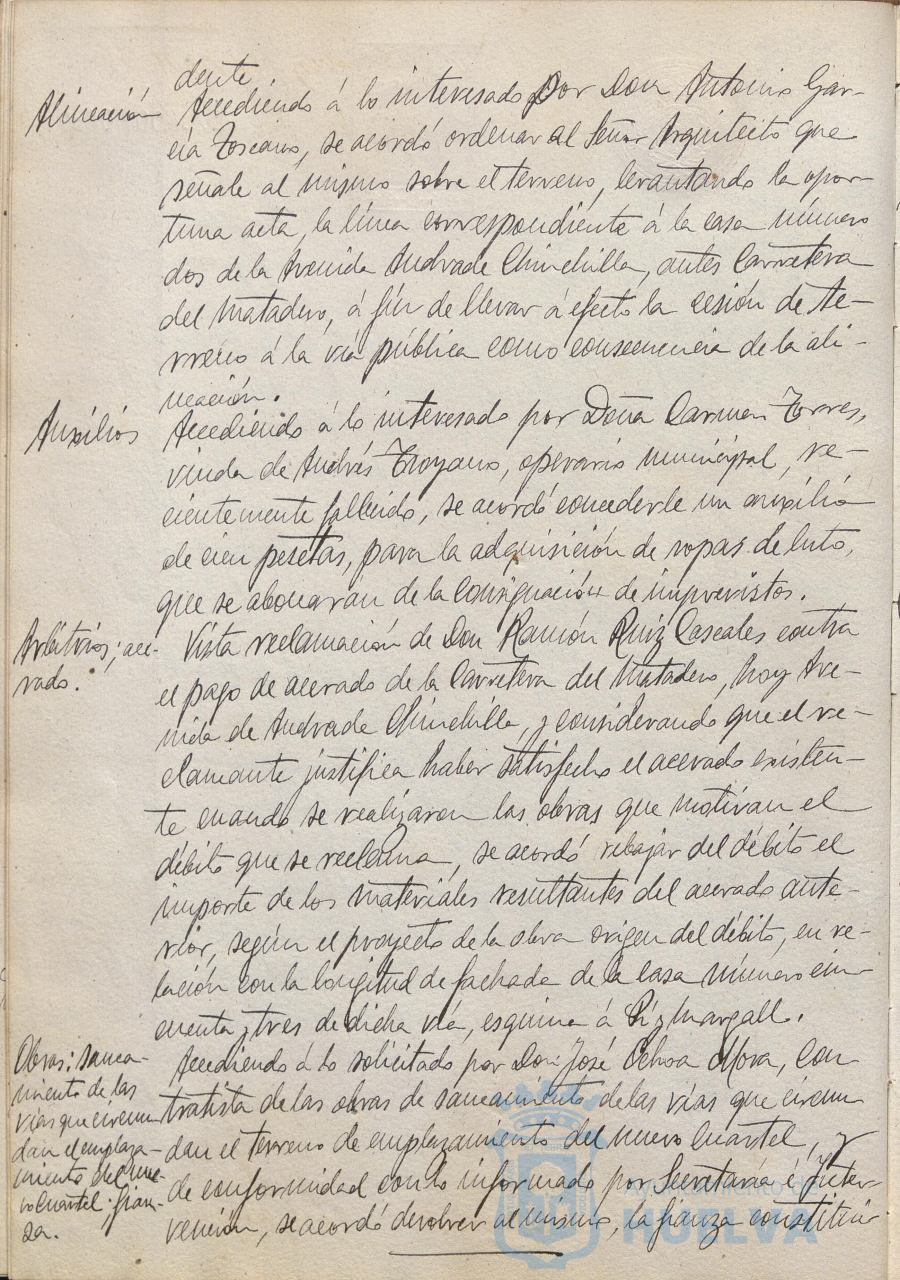 dente
Alineación Accediendo á lo interesado por Don Antonio Gar-
cía Toscano, se acordó ordenar al Señor Arquitecto que
señale al mismo sobre el terreno, levantando la opor-
tuna acta, la línea correspondiente á la casa número
dos de la Avenida Andrade Chinchilla, antes Carretera
del Matadero, á fin de llevar á efecto la cesión de te-
rreno á la vía pública como consecuencia de la ali-
neación.
Auxilios Accediendo á lo interesado por Doña Carmen Torres,
viuda de Andrés Troyano, operario municipal, re-
cientemente fallecido, se acordó concederle un auxilio
de cien pesetas, para la adquisición de ropas de luto,
que se abonarán de la consignación de imprevistos.
Arbitrios; ace-
rado.
Vista reclamación de Don Ramón Ruiz Cascales contra
el pago de acerado de la Carretera del Matadero, hoy Ave-
nida de Andrade Chinchilla, y considerando que el re-
clamante justifica haber satisfecho el acerado existen-
te cuando se realizaron las obras que motivan el
débito que se reclama, se acordó rebajar del débito el
importe de los materiales resultantes del acerado ante-
rior, según el proyecto de la obra origen del débito, en re-
lación con la longitud de fachada de la casa número cin-
cuenta y tres de dicha vía, esquina á Pí y Margall.
Obras: sanea-
miento de las
vías que circun
dan el emplaza-
miento del nue-
vo Cuartel; fian-
za.
Accediendo á lo solicitado por Don José Ochoa Mora, con
tratista de las obras de saneamiento de las vías que circun
dan el terreno de emplazamiento del nuevo Cuartel, y
de conformidad con lo informado por Secretaría é Inter-
vención, se acordó devolver al mismo, la fianza constitui
Ayuntamiento de
HUELVA